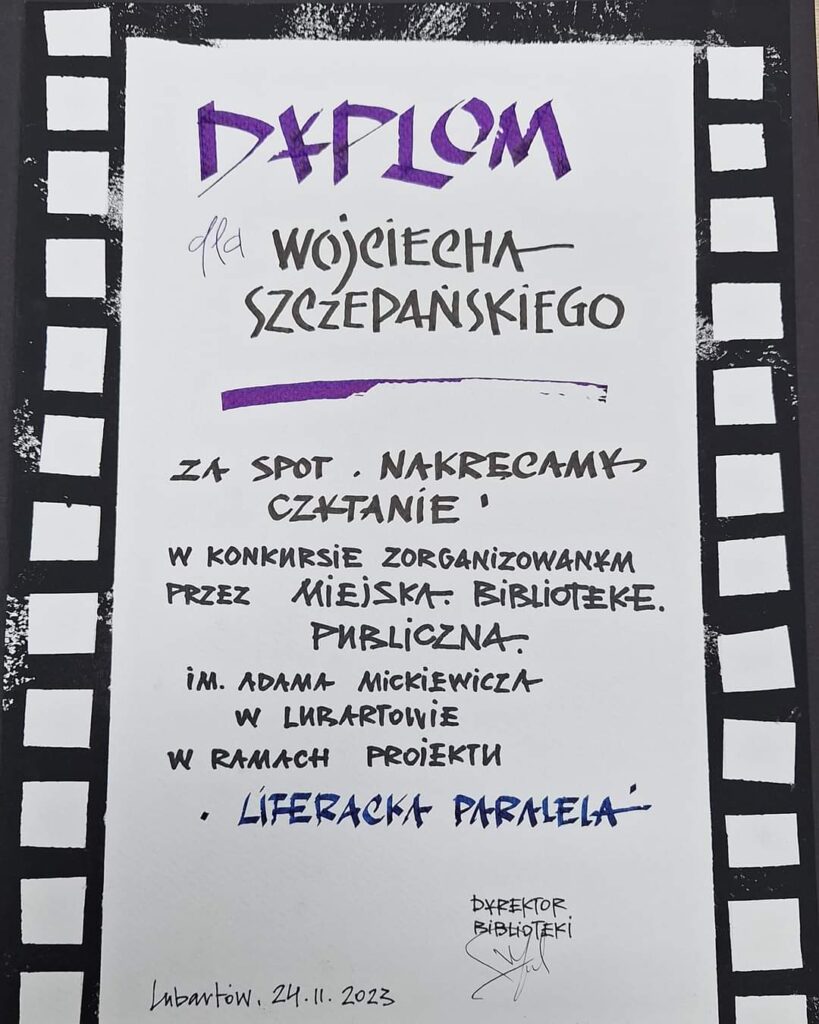 DYPLOM
dla WOJCIECHA
SZCZEPAŃSKIEGO
ZA SPOT . NAKRĘCAMY
CZYTANIE '
W KONKURSIE ZORGANIZOWANYM
PRZEZ MIEJSKĄ BIBLIOTEKĘ
PUBLICZNĄ
IM. ADAMA MICKIEWICZA
W LUBARTOWIE
W RAMACH PROJEKTU
. LITERACKA PARALELA '
DYREKTOR
BIBLIOTEKI
Lubartów, 24.11.2023